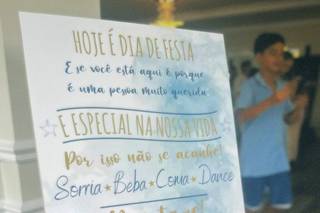 HOJE É DIA DE FESTA
E se você está aqui é porque
é uma pessoa muito querida
E ESPECIAL NA NOSSA VIDA
Por isso não se acanhe!
Sorria ★ Beba ★ Coma ★ Dance